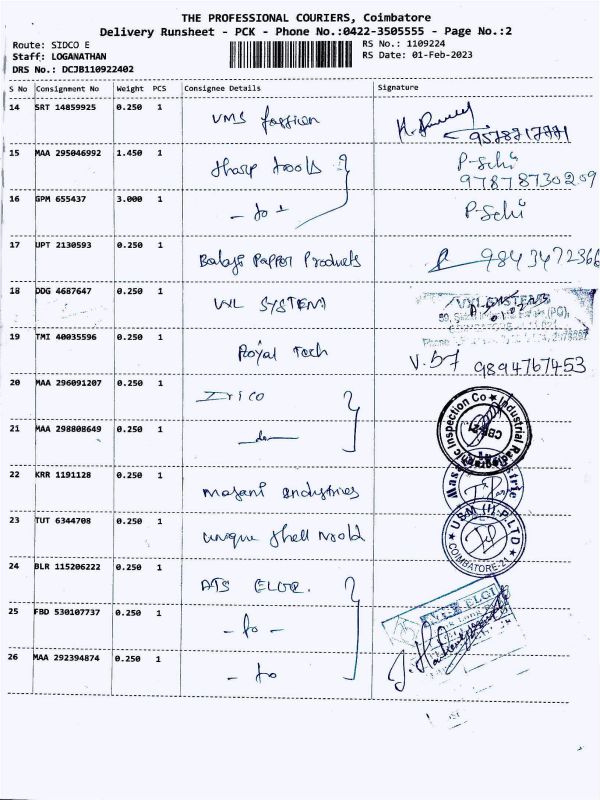 THE PROFESSIONAL COURIERS, Coimbatore
Delivery Runsheet - PCK - Phone No.:0422-3505555 - Page No.:2
Route: SIDCO E
RS No.: 1109224
Staff: LOGANATHAN
RS Date: 01-Feb-2023
DRS No.: DCJB110922402
S No Consignment No Weight PCS Consignee Details Signature
14 SRT 14859925 0.250 1 VMS fassion
9578717771
15 MAA 295046992 1.450 1 sharp tools P-Selvi
97878730209
16 GPM 655437 3.000 1 - to - P-Selvi
17 UPT 2130593 0.250 1 Balaji Papper Products 9843472366
18 DDG 4687647 0.250 1 VXL SYSTEM VXL SYSTEMS
19 TMI 40035596 0.250 1 Royal Tech 9894767453
20 MAA 296091207 0.250 1 Irico
21 MAA 298808649 0.250 1 -do- Industrial Radiographic Inspection Co CBE-21
22 KRR 1191128 0.250 1 masani industries
23 TUT 6344708 0.250 1 unique shell mold U.B.M (I) P.LTD COIMBATORE-21
24 BLR 115206222 0.250 1 ATS ELGI. ELGI
25 FBD 530107737 0.250 1 - to -
26 MAA 292394874 0.250 1 - to